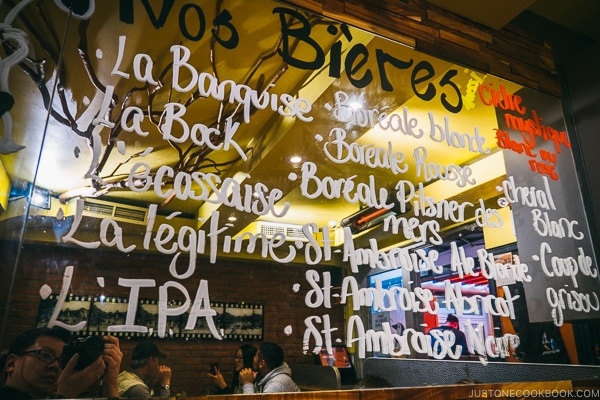 Nos Bières
La Banquise
La Bock
L'écossaise
La légitime
L'IPA
Boréale blonde
Boréale Rousse
Boréale Pilsner des
mers
St-Ambroise Ale Blonde
St-Ambroise Abricot
St-Ambroise Noire
cidre
mystique
blanc ou
rosé
cheval
Blanc
Coup de
grisou
JUSTONECOOKBOOK.COM